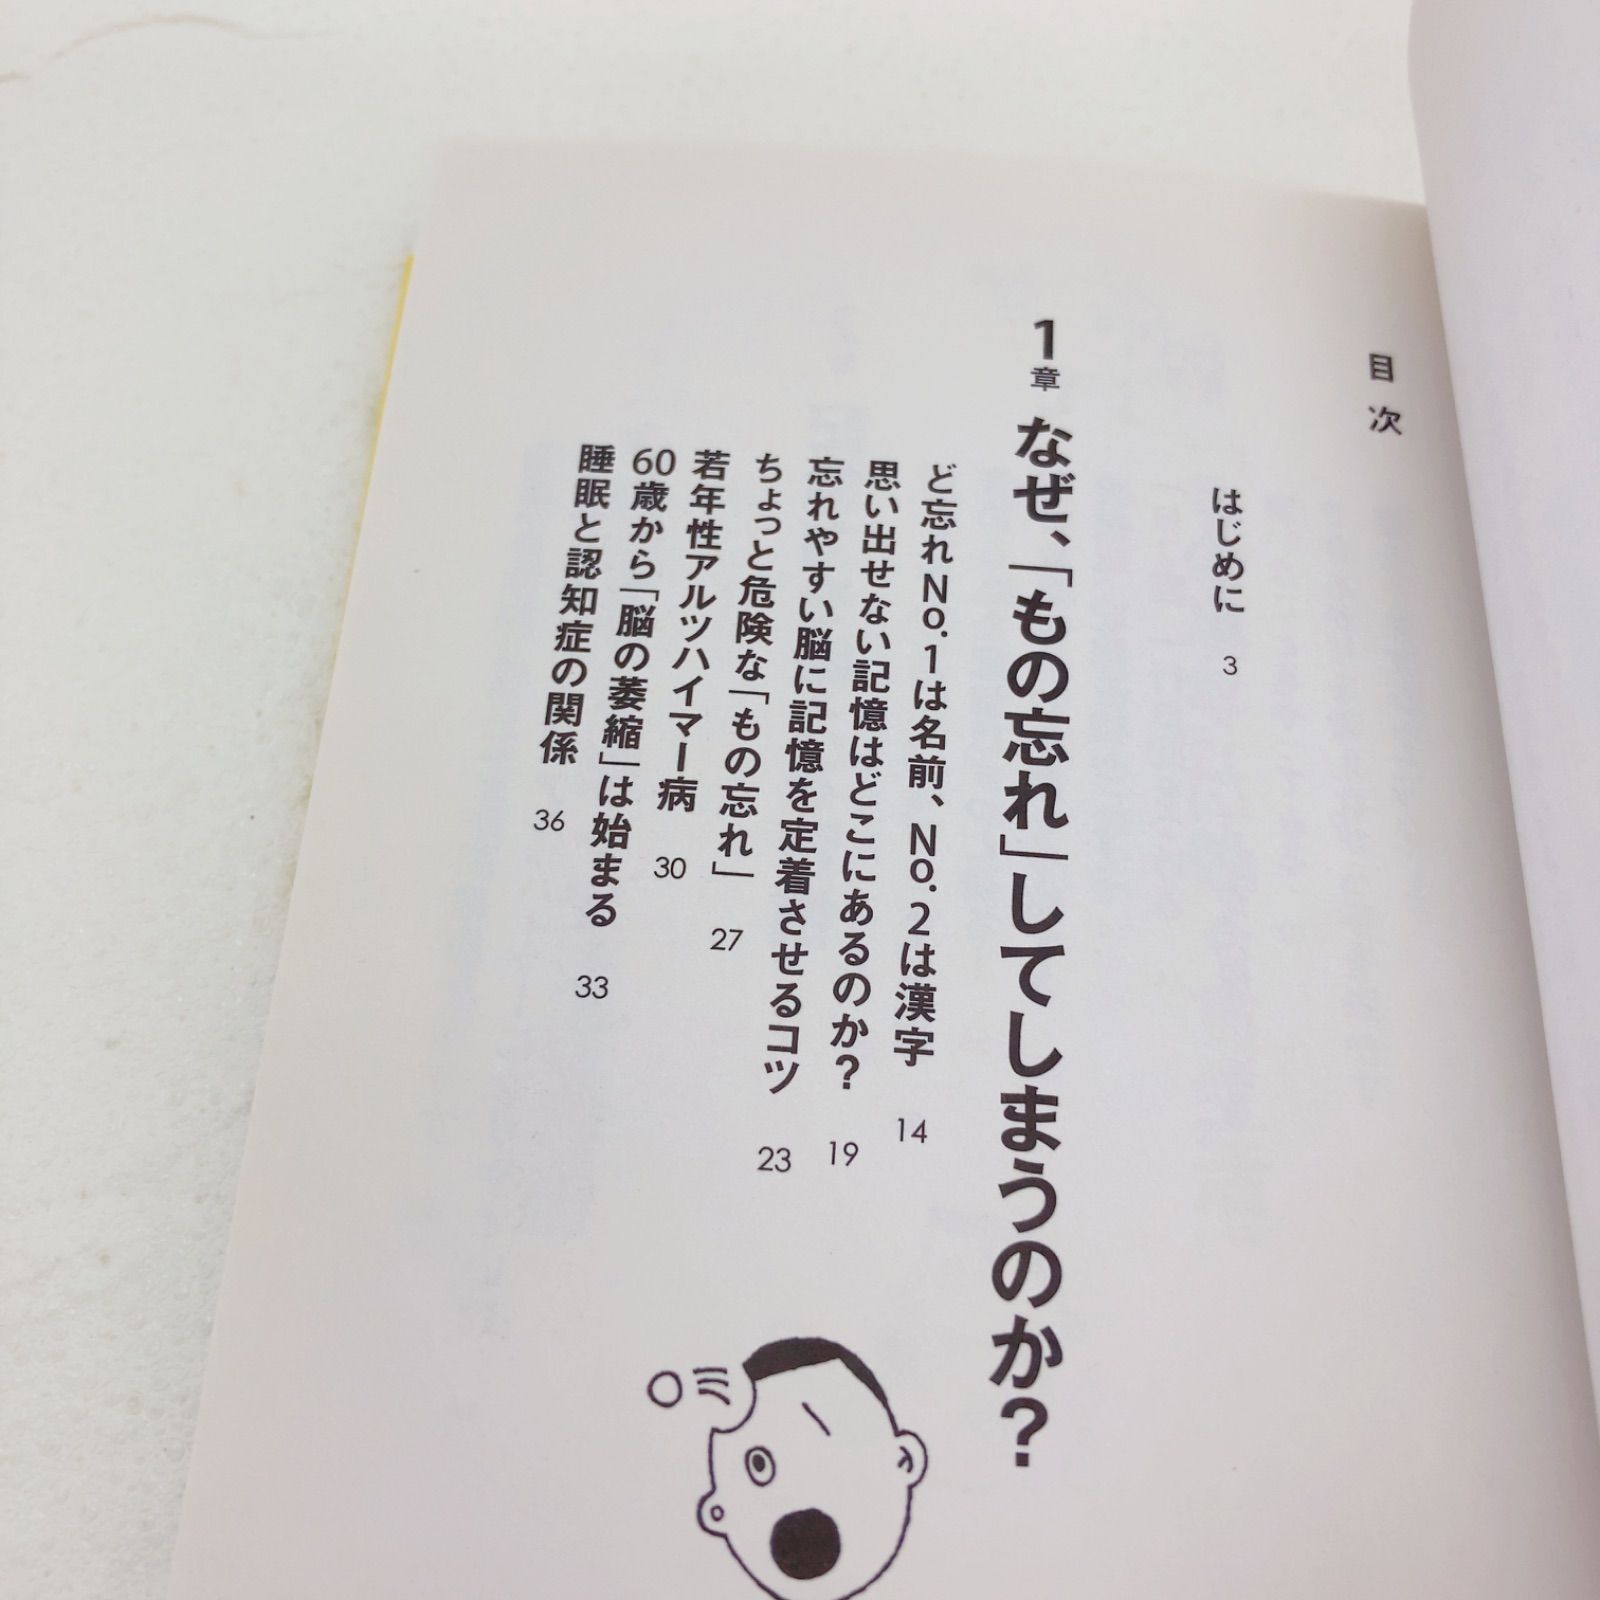 目次
はじめに 3
1章 なぜ、「もの忘れ」してしまうのか？
ど忘れNo.1は名前、No.2は漢字 14
思い出せない記憶はどこにあるのか？ 19
忘れやすい脳に記憶を定着させるコツ 23
ちょっと危険な「もの忘れ」 27
若年性アルツハイマー病 30
60歳から「脳の萎縮」は始まる 33
睡眠と認知症の関係 36